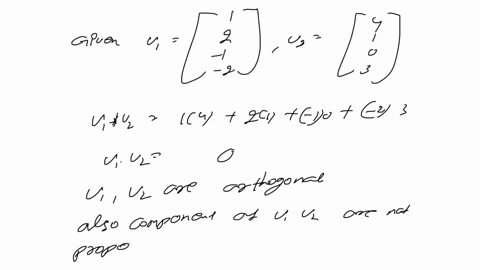 Given v₁ = [1 2 -1 -2], v₂ = [4 1 0 3]
v₁ * v₂ = 1(4) + 2(1) + (-1)0 + (-2) 3
v₁ . v₂ = 0
v₁, v₂ are orthogonal
also component of v₁ v₂ are not
propo